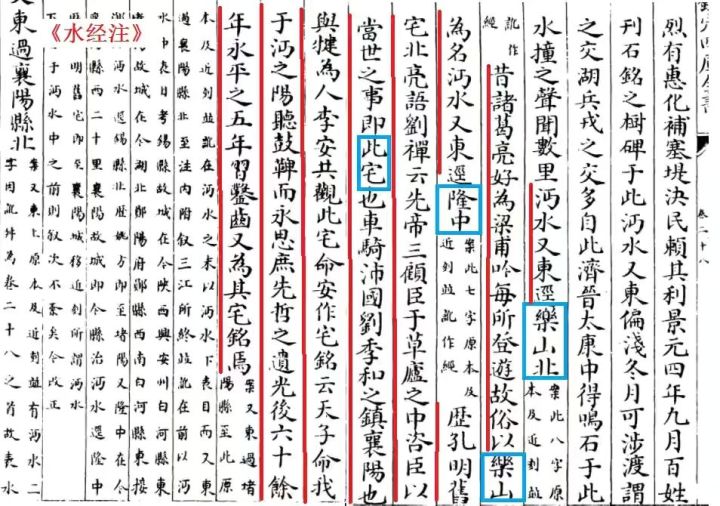 《水经注》
卷二十八
烈有惠化補塞堤決民賴其利景元四年九月百姓
刊石銘之樹碑于此沔水又東偏淺冬月可涉渡謂
之交湖兵戎之交多自此濟晉太康中得鳴石于此
水撞之聲聞數里沔水又東逕樂山北
案此八字原
本及近刻並
訛作
經
昔諸葛亮好為梁甫吟每所登遊故俗以樂山
為名沔水又東逕隆中
案此七字原本及
近刻並訛作經
歷孔明舊
宅北亮語劉禪云先帝三顧臣于草廬之中咨臣以
當世之事即此宅也車騎沛國劉季和之鎮襄陽也
與犍為人李安共觀此宅命安作宅銘云天子命我
于沔之陽聽鼓鞞而永思庶先哲之遺光後六十餘
年永平之五年習鑿齒又為其宅銘焉
案又東過堵
陽縣至此原
本及近刻並訛在沔水之末以沔水下表目而又東
過襄陽縣北至注內附叙三江所終並訛在前以沔
水中表目考錫縣故城在今陝西興安州白河縣東
故城在今湖北鄖陽府鄖縣西南白河縣東接
沔水逕錫縣北歷姚方即至堵陽又隆中在今
縣西二十里襄陽故城即今縣治沔水逕隆中
明舊宅即至襄陽城移近刻所謂沔水
于沔水中之前則叙次不紊矣今改正
又東過襄陽縣北
案又東上原本及近刻並有沔水二
字因訛為卷二十八之首故表水